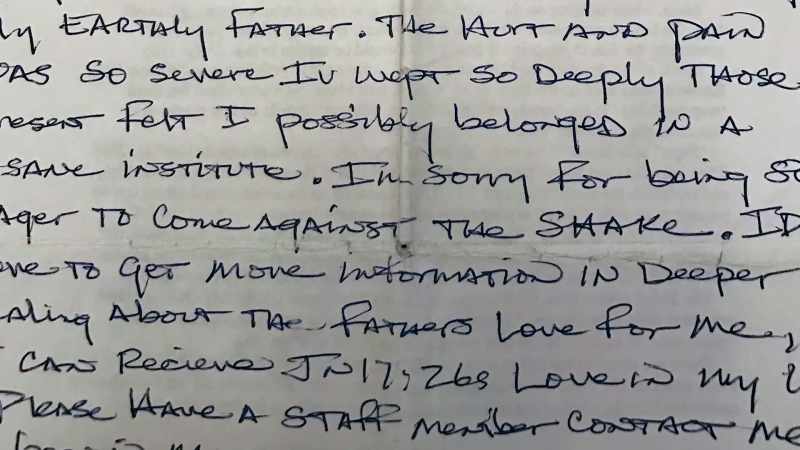 ly EARTHly FATHER. THE HURT AND PAIN
AS SO Severe I wept SO Deeply THOSE
resent felt I possibly belonged IN A
SANE INSTITUTE. I'm Sorry for being SO
AGER TO Come AGAINST THE SHAKE. ID
ove TO GET More INFORMATION IN Deeper
aling ABOUT THE FATHERS Love for Me,
I CAN Recieve JN17;26s Love in My
Please HAVE A STAFF member CONTACT Me